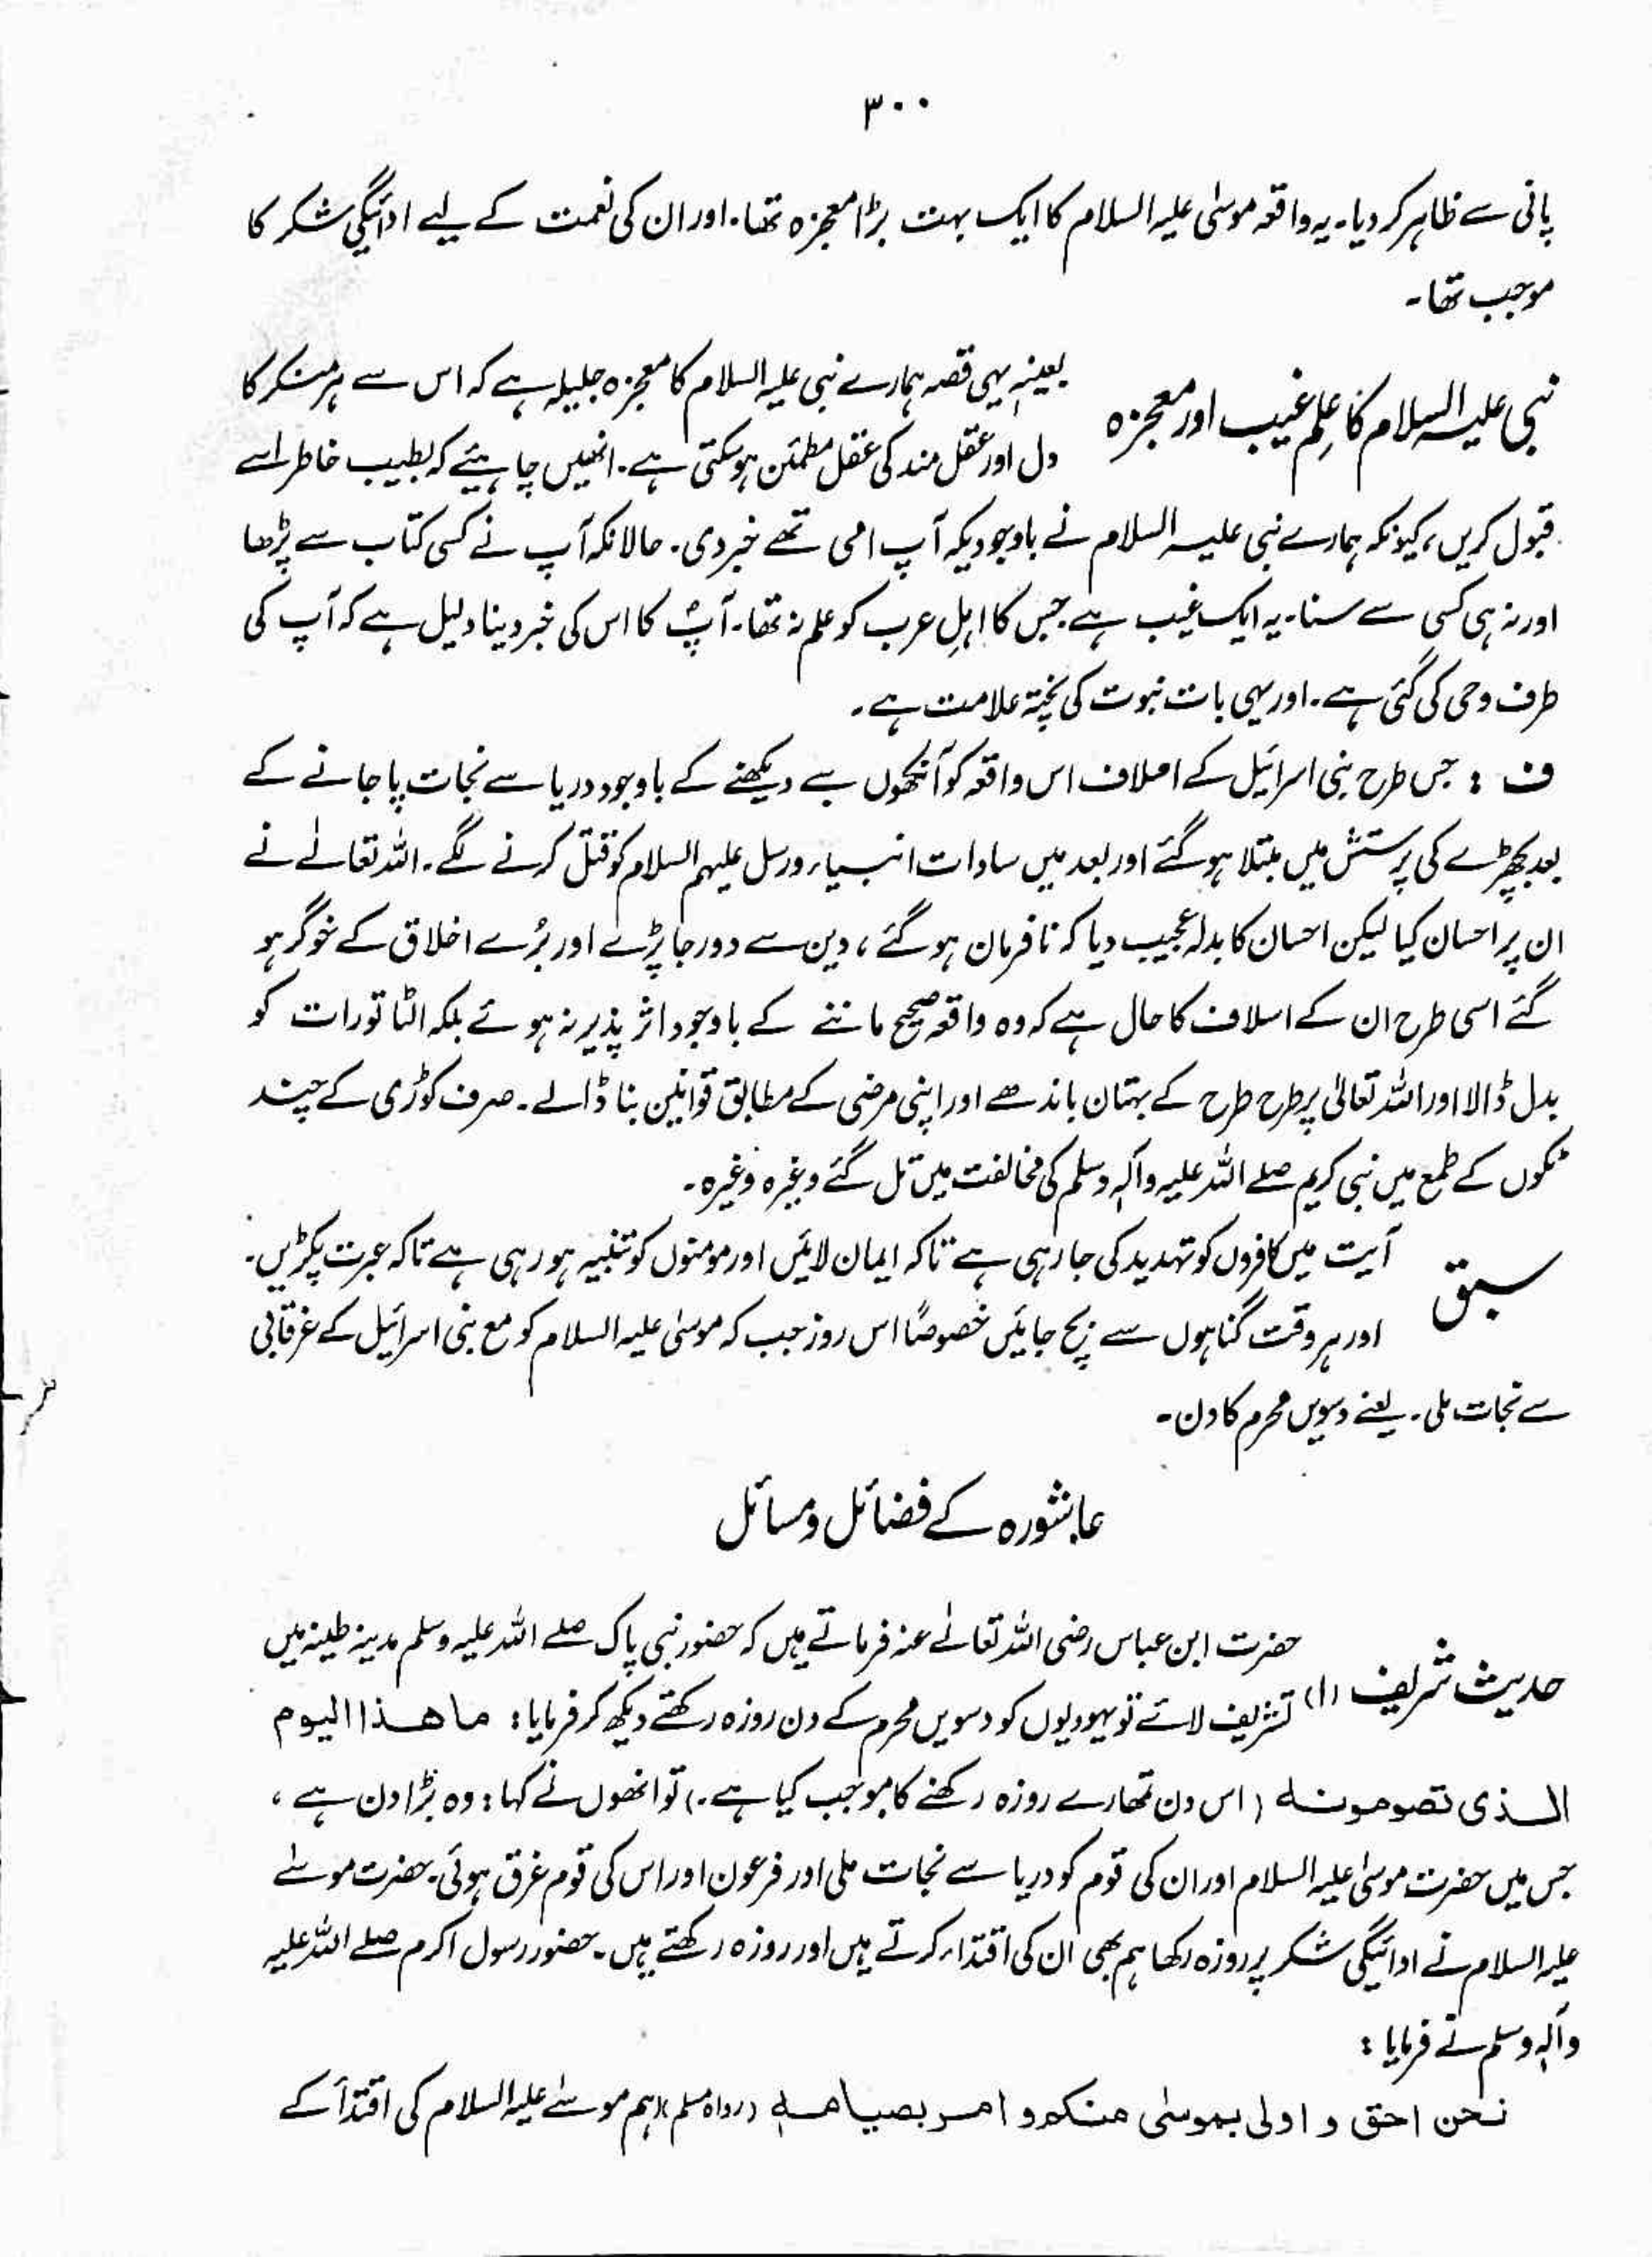 ۳۰۰
پانی سے ظاہر کر دیا۔ یہ واقعہ موسٰی علیہ السلام کا ایک بہت بڑا معجزہ تھا۔ اور ان کی نعمت کے لیے ادائیگیِ شکر کا
موجب تھا۔
نبی علیہ السلام کا علِم غیب اور معجزہ
بعینہٖ یہی قصہ ہمارے نبی علیہ السلام کا معجزہ جلیلہ ہے کہ اس سے ہر منکر کا
دل اور عقل مند کی عقل مطمئن ہو سکتی ہے۔ انھیں چاہیئے کہ بطیب خاطر اسے
قبول کریں، کیونکہ ہمارے نبی علیہ السلام نے باوجودیکہ آپ امی تھے خبر دی۔ حالانکہ آپ نے کسی کتاب سے پڑھا
اور نہ ہی کسی سے سنا۔ یہ ایک غیب ہے جس کا اہلِ عرب کو علم نہ تھا۔ آپؐ کا اس کی خبر دینا دلیل ہے کہ آپ کی
طرف وحی کی گئی ہے۔ اور یہی بات نبوت کی پختہ علامت ہے۔
ف : جس طرح بنی اسرائیل کے اسلاف اس واقعہ کو آنکھوں سے دیکھنے کے باوجود دریا سے نجات پا جانے کے
بعد بچھڑے کی پرستش میں مبتلا ہو گئے اور بعد میں سادات انبیاء ورسل علیہم السلام کو قتل کرنے لگے۔ اللہ تعالےٰ نے
ان پر احسان کیا لیکن احسان کا بدلہ عجیب دیا کہ نافرمان ہو گئے، دین سے دور جا پڑے اور بُرے اخلاق کے خوگر ہو
گئے اسی طرح ان کے اسلاف کا حال ہے کہ وہ واقعہ صحیح ماننے کے باوجود اثر پذیر نہ ہوئے بلکہ الٹا تورات کو
بدل ڈالا اور اللہ تعالیٰ پر طرح طرح کے بہتان باندھے اور اپنی مرضی کے مطابق قوانین بنا ڈالے۔ صرف کوڑی کے چند
ٹکوں کے طمع میں نبی کریم صلے اللہ علیہ وآلہٖ وسلم کی مخالفت میں تل گئے وغیرہ وغیرہ۔
سبق
آیت میں کافروں کو تہدید کی جا رہی ہے تاکہ ایمان لائیں اور مومنوں کو تنبیہ ہو رہی ہے تاکہ عبرت پکڑیں۔
اور ہر وقت گناہوں سے بچ جائیں خصوصًا اس روز جب کہ موسیٰ علیہ السلام کو مع بنی اسرائیل کے غرقابی
سے نجات ملی۔ یعنے دسویں محرم کا دن۔
عاشورہ کے فضائل و مسائل
حدیث شریف (۱)
حضرت ابن عباس رضی اللہ تعالےٰ عنہ فرماتے ہیں کہ حضور نبی پاک صلے اللہ علیہ وسلم مدینہ طیبہ میں
تشریف لائے تو یہودیوں کو دسویں محرم کے دن روزہ رکھتے دیکھ کر فرمایا : ما ھذا الیوم
الذی تصومونہ (اس دن تمھارے روزہ رکھنے کا موجب کیا ہے۔) تو انھوں نے کہا : وہ بڑا دن ہے،
جس میں حضرت موسیٰ علیہ السلام اور ان کی قوم کو دریا سے نجات ملی اور فرعون اور اس کی قوم غرق ہوئی۔ حضرت موسےٰ
علیہ السلام نے ادائیگی شکر پر روزہ رکھا ہم بھی ان کی اقتداء کرتے ہیں اور روزہ رکھتے ہیں۔ حضور رسول اکرم صلے اللہ علیہ
وآلہٖ وسلم نے فرمایا :
نحن احق و اولی بموسٰی منکم و امر بصیامہ (رواہ مسلم) (ہم موسےٰ علیہ السلام کی اقتدأ کے